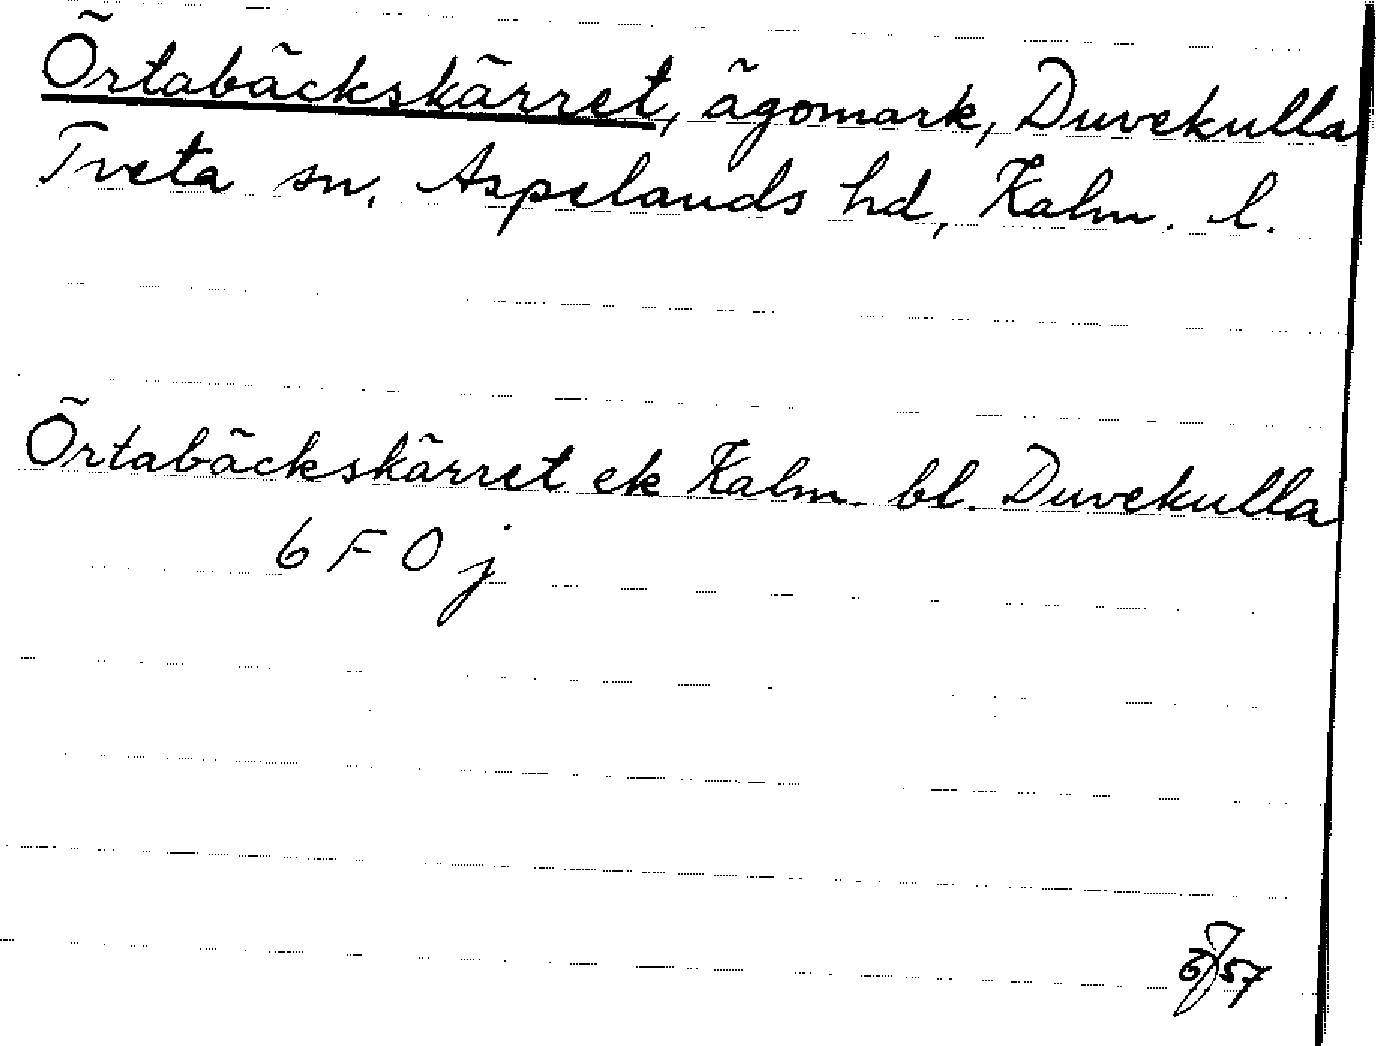 Örtabäckskärret, ägomark, Duvekulla
Tveta sn, Aspelands hd, Kalm. l.
Örtabäckskärret ek Kalm. bl. Duvekulla
6 F 0 j
57